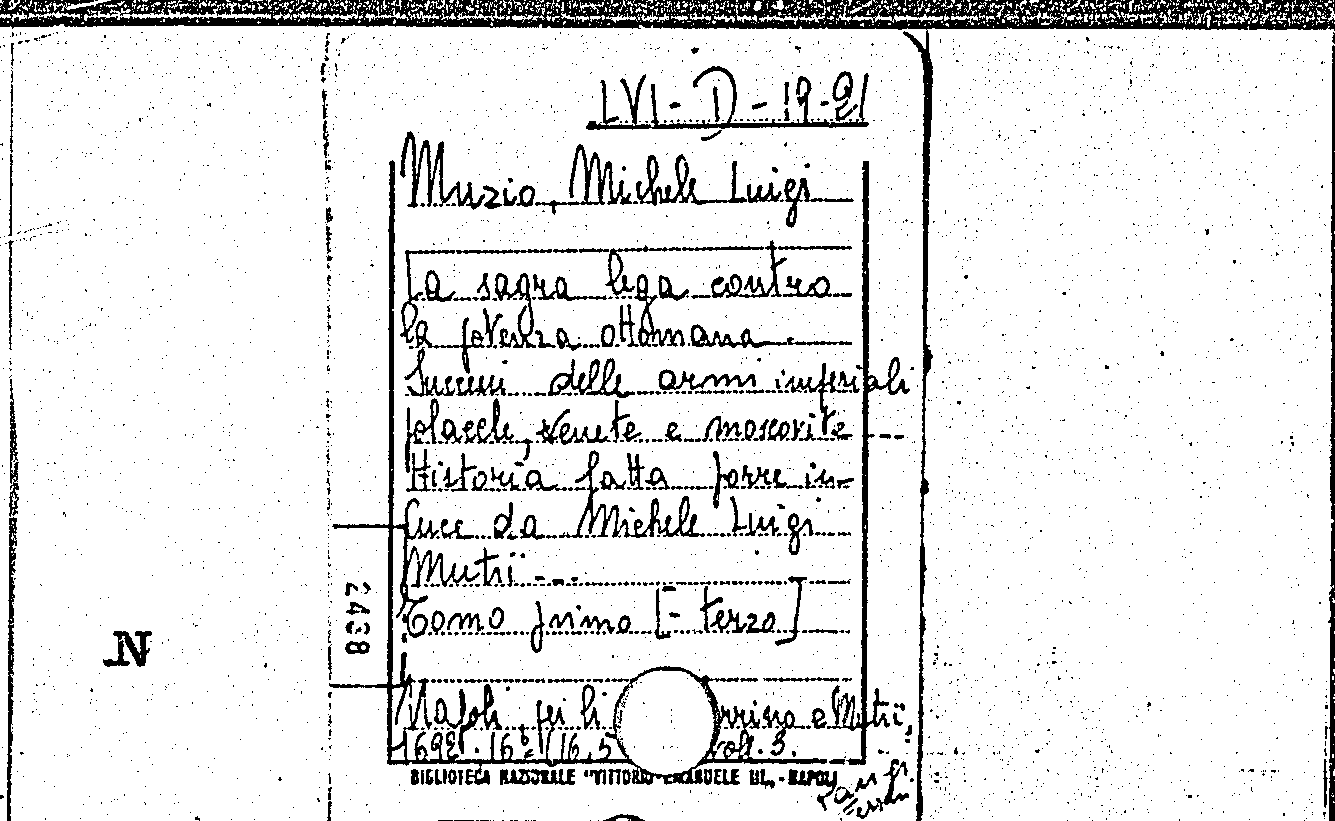 LVI-D-19-21
Muzio, Michele Luigi
La sagra lega contro
la potenza ottomana.
Successi delle armi imperiali
polacche, venete e moscovite ---
Historia fatta porre in
luce da Michele Luigi
Mutii ---
Tomo primo [- terzo]
Napoli, per li rrino e Mutii,
16º (16,5 voll. 3.
BIBLIOTECA NAZIONALE "VITTORIO EMANUELE III" - NAPOLI
2438
N